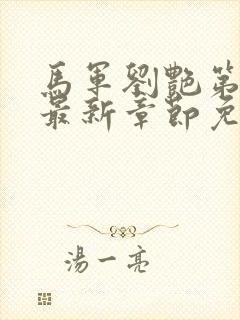 馬軍劉艷第
最新章節免
湯一亮